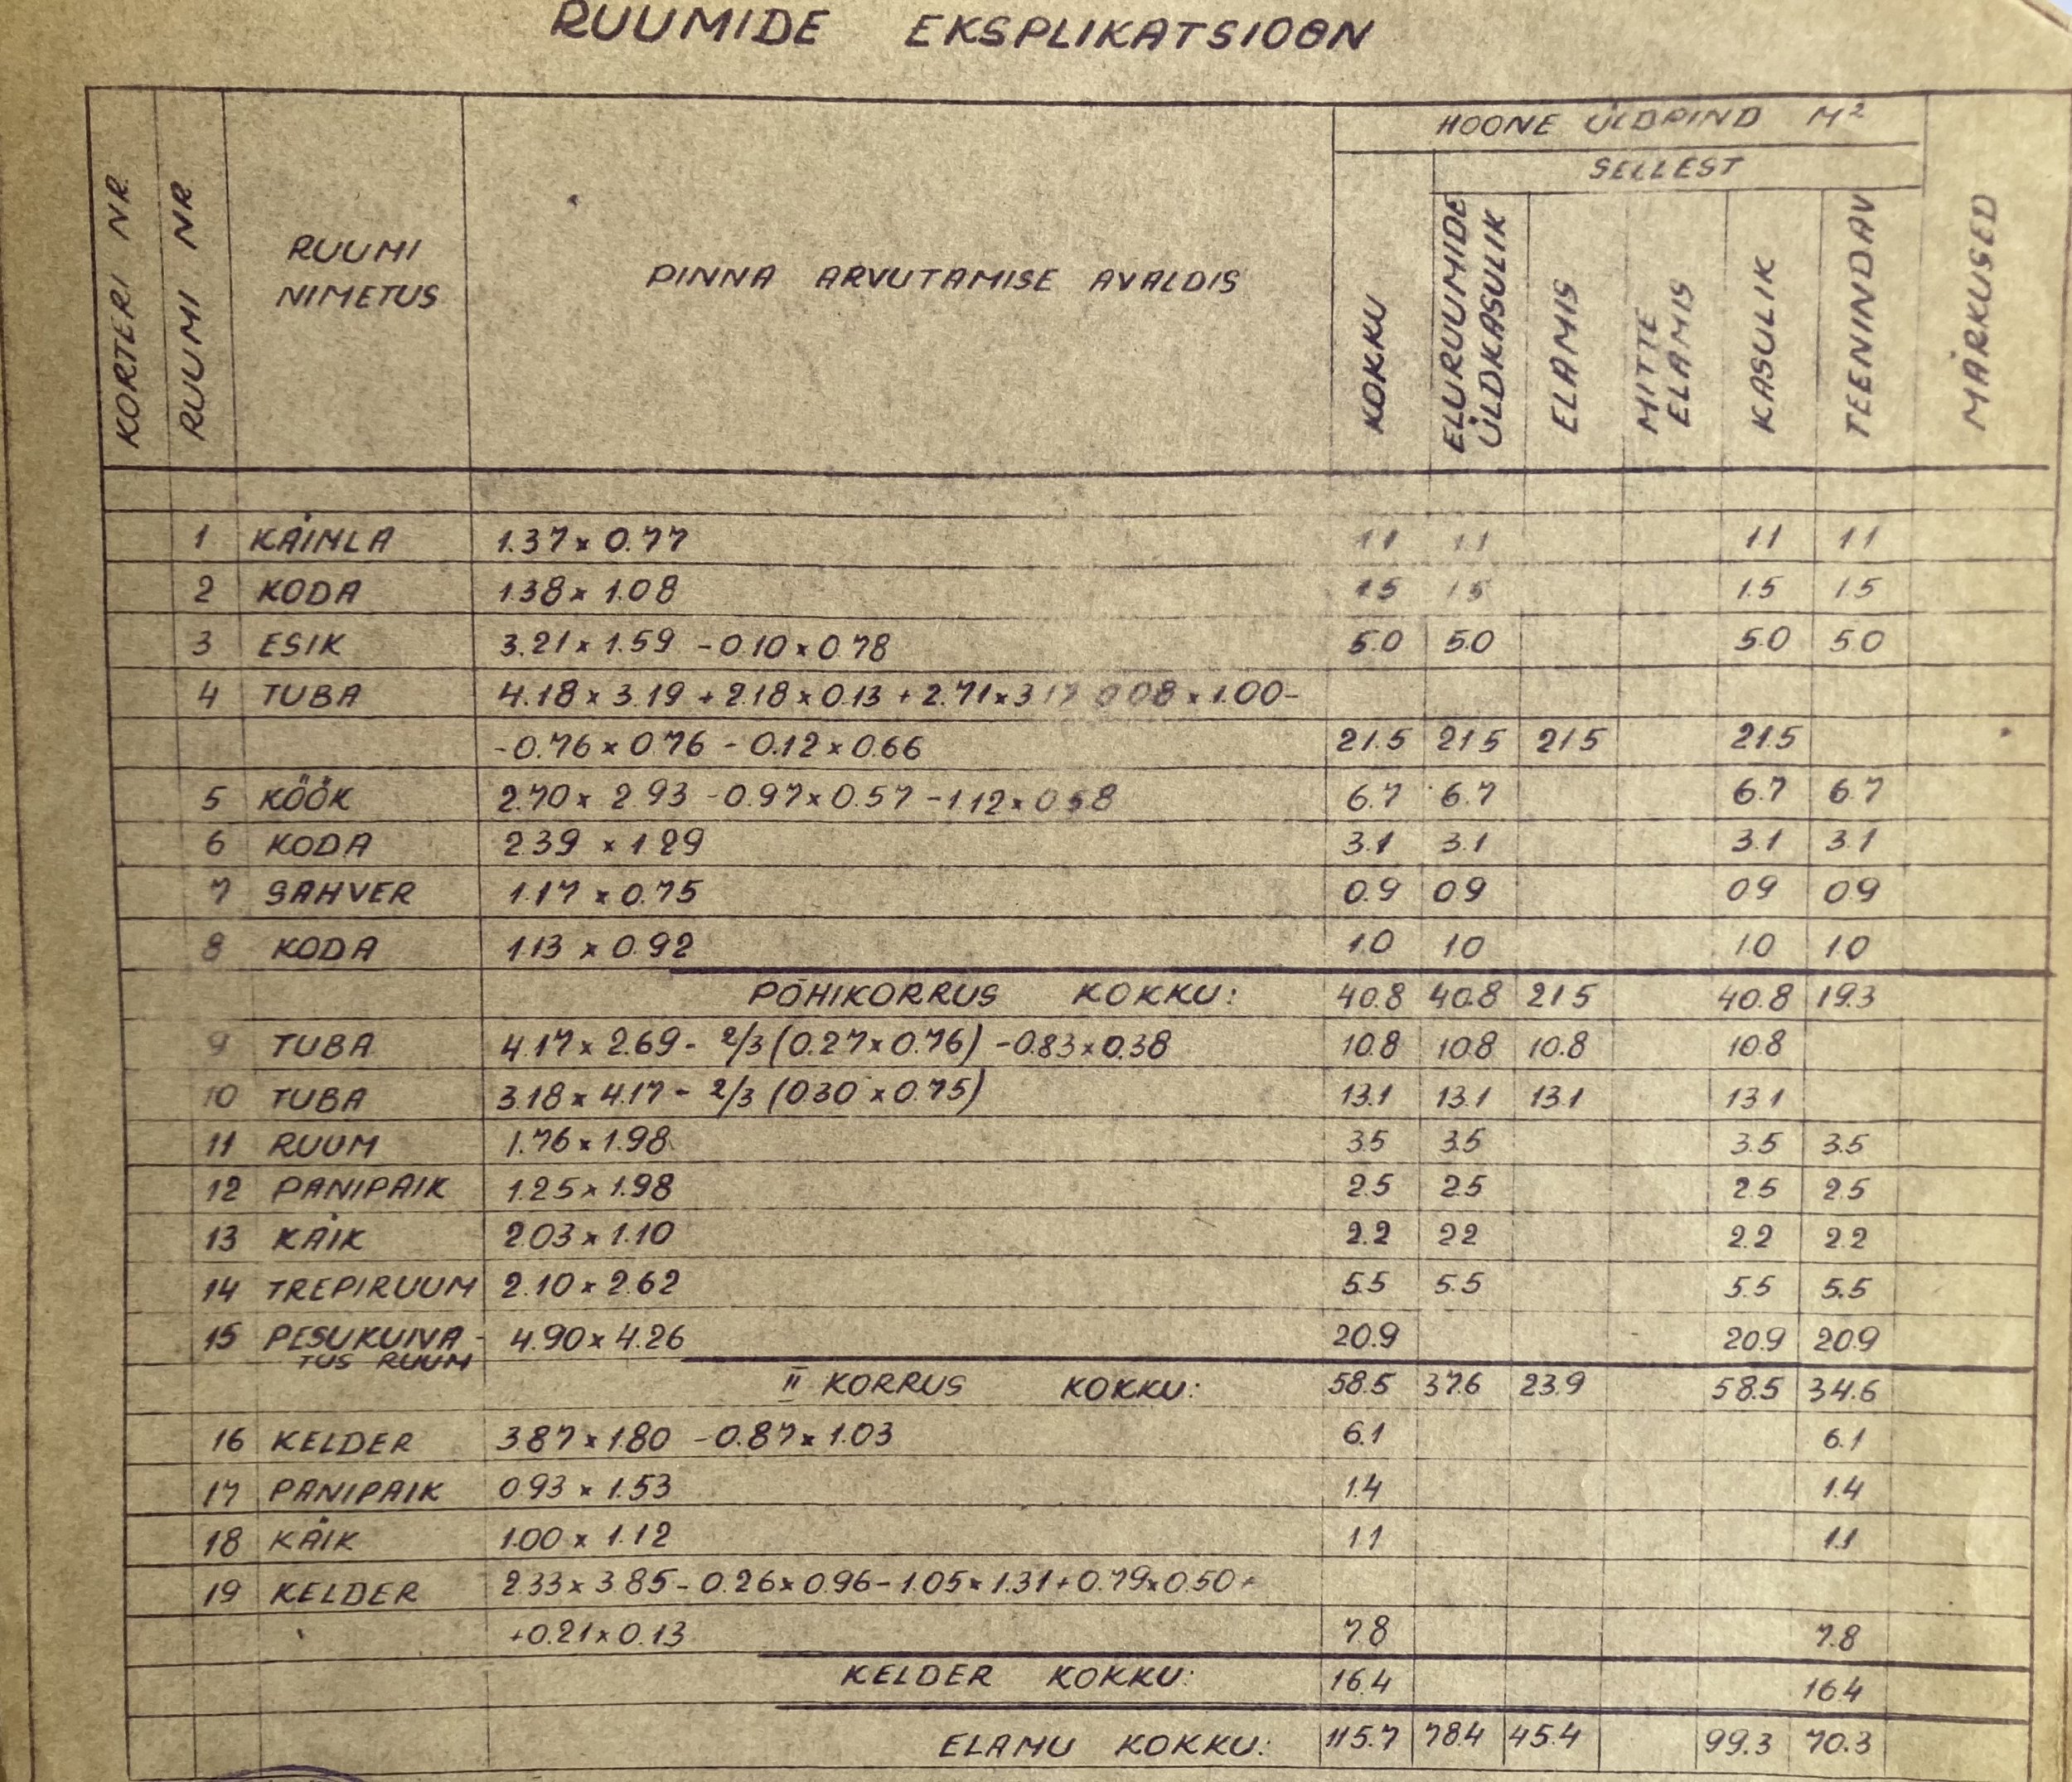 RUUMIDE EKSPLIKATSIOON
KORTERI NR.
RUUMI NR
RUUMI NIMETUS
PINNA ARVUTAMISE AVALDIS
HOONE ÜLDPIND M²
SELLEST
KOKKU
ELURUUMIDE ÜLDKASULIK
ELAMIS
MITTE ELAMIS
KASULIK
TEENINDAV
MÄRKUSED
1 KÄIMLA 1.37 x 0.77 1.1 1.1 1.1 1.1
2 KODA 1.38 x 1.08 1.5 1.5 1.5 1.5
3 ESIK 3.21 x 1.59 - 0.10 x 0.78 5.0 5.0 5.0 5.0
4 TUBA 4.18 x 3.19 + 2.18 x 0.13 + 2.71 x 0.08 x 1.00 -
-0.76 x 0.76 - 0.12 x 0.66 21.5 21.5 21.5 21.5
5 KÖÖK 2.70 x 2.93 - 0.97 x 0.57 - 1.12 x 6.7 6.7 6.7 6.7
6 KODA 2.39 x 1.29 3.1 3.1 3.1 3.1
7 SAHVER 1.17 x 0.75 0.9 0.9 0.9 0.9
8 KODA 1.13 x 0.92 1.0 1.0 1.0 1.0
PÕHIKORRUS KOKKU: 40.8 40.8 21.5 40.8 19.3
9 TUBA 4.17 x 2.69 - 2/3 (0.27 x 0.76) - 0.83 x 0.38 10.8 10.8 10.8 10.8
10 TUBA 3.18 x 4.17 - 2/3 (0.30 x 0.75) 13.1 13.1 13.1 13.1
11 RUUM 1.76 x 1.98 3.5 3.5 3.5 3.5
12 PANIPAIK 1.25 x 1.98 2.5 2.5 2.5 2.5
13 KÄIK 2.03 x 1.10 2.2 2.2 2.2 2.2
14 TREPIRUUM 2.10 x 2.62 5.5 5.5 5.5 5.5
15 PESUKUIVA- 4.90 x 4.26 20.9 20.9 20.9
TUS RUUM
II KORRUS KOKKU: 58.5 37.6 23.9 58.5 34.6
16 KELDER 3.87 x 1.80 - 0.87 x 1.03 6.1 6.1
17 PANIPAIK 0.93 x 1.53 1.4 1.4
18 KÄIK 1.00 x 1.12 1.1 1.1
19 KELDER 2.33 x 3.85 - 0.26 x 0.96 - 1.05 x 1.31 + 0.79 x 0.50 +
+0.21 x 0.13 7.8 7.8
KELDER KOKKU: 16.4 16.4
ELAMU KOKKU: 115.7 78.4 45.4 99.3 70.3